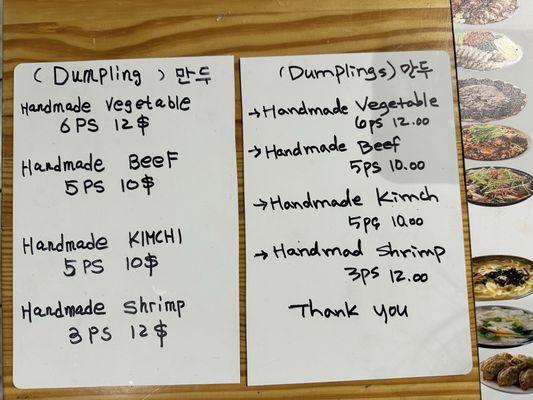 (Dumpling) 만두
Handmade Vegetable
6 PS 12$
Handmade BEEF
5 PS 10$
Handmade KIMCHI
5 PS 10$
Handmade Shrimp
3 PS 12$
(Dumplings) 만두
→Handmade Vegetable
6ps 12.00
→Handmade Beef
5ps 10.00
→Handmade Kimch
5ps 10.00
→Handmad Shrimp
3ps 12.00
Thank you